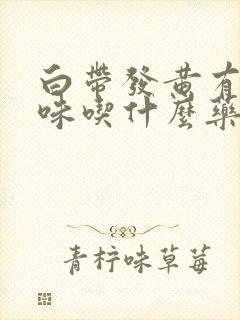 白帶發黃有
味喫什麼藥
青柠味草莓